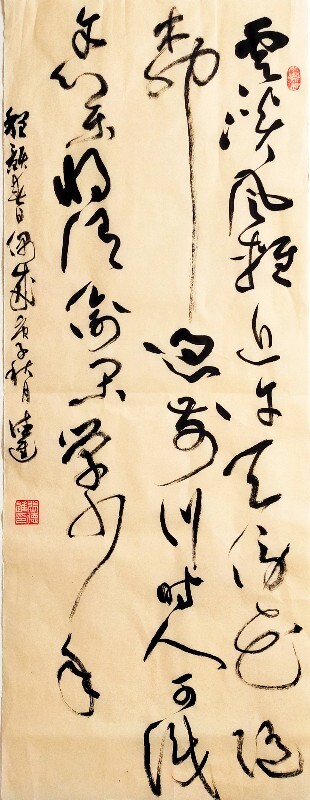 雲淡风輕近午天傍花随
柳過前川时人不識
余心乐将谓偷闲学少年
程颢春日偶成庚子秋月